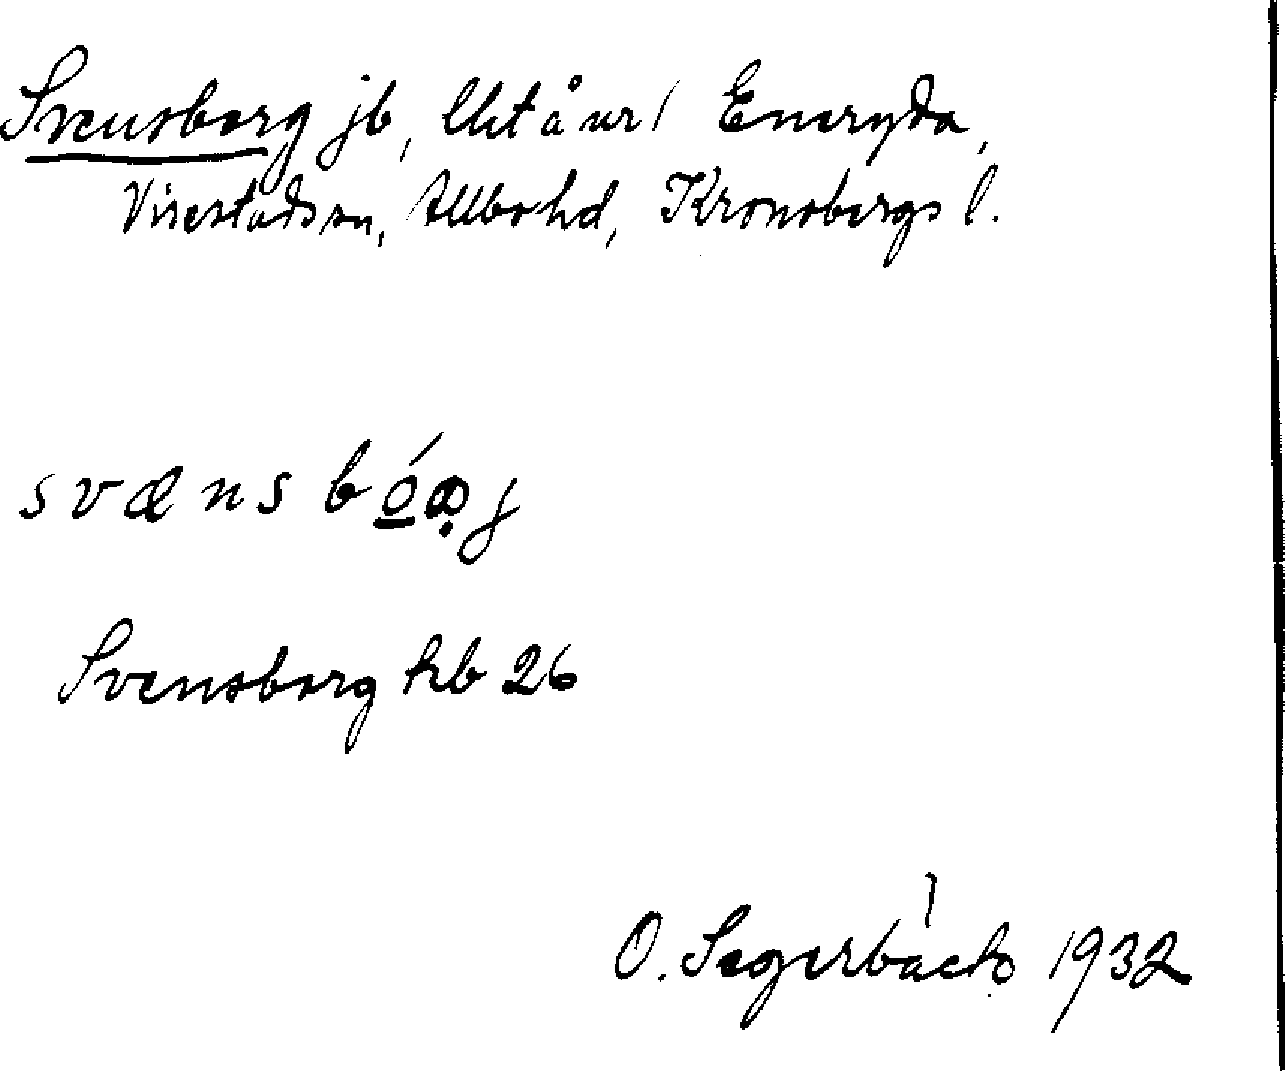 Svensborg jb, Utt å nr 1 Eneryda,
Virestads sn, Allbo hd, Kronobergs l.
svænsbó̲œ̣j
Svensborg kb 26
O. Segerbäck 1932